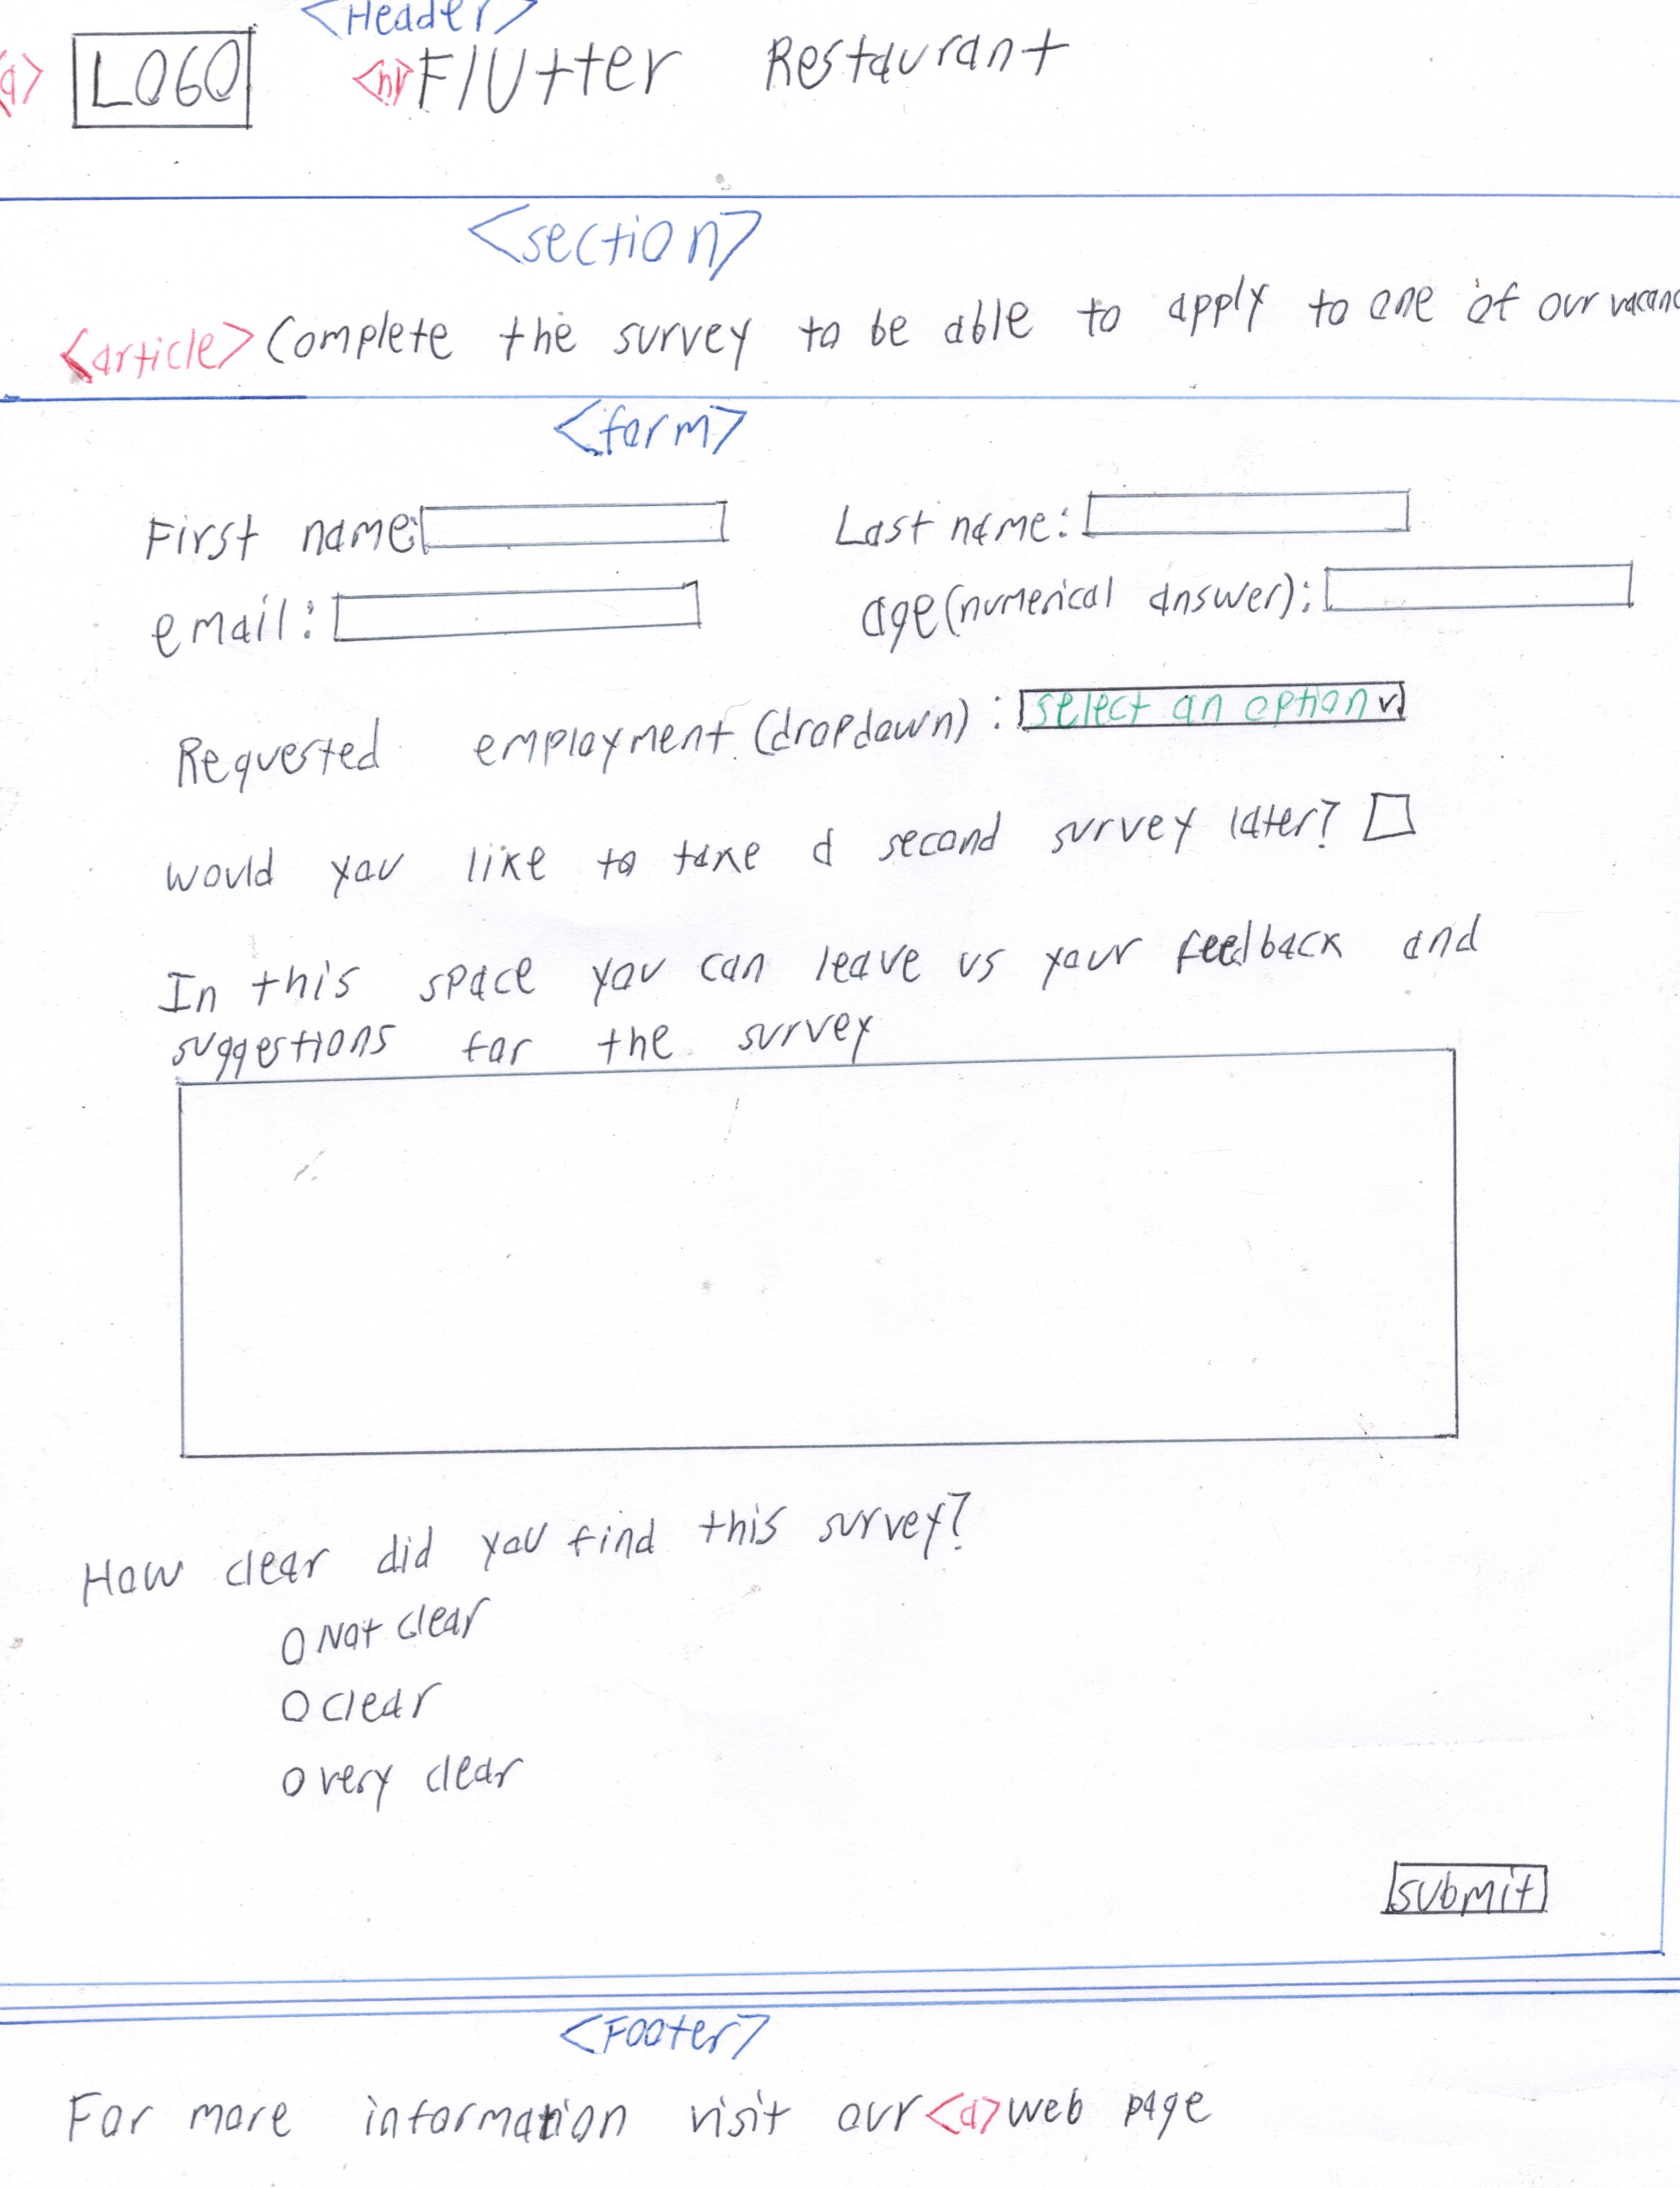 <Header>
<a> LOGO <h1> Flutter Restaurant
<section>
<article> Complete the survey to be able to apply to one of our
<form>
First name: Last name:
email: age (numerical answer):
Requested employment (dropdown): select an option v
would you like to take a second survey later?
In this space you can leave us your feedback and
suggestions for the survey
How clear did you find this survey?
Not clear
clear
very clear
submit
<Footer>
For more information visit our <a> web page